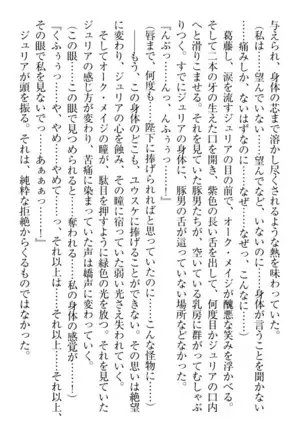 与えられ、身体の芯まで溶かし尽くされるような熱を味わっていた。
(私は……望んでいない……望んでなど、いないのに……身体が言うことを聞かない
……痛みしか、ないはずなのに……なぜ……なぜっ、こんなに……)
葛藤し、涙を流すジュリアの目の前で、オーク・メイジが醜悪な笑みを浮かべる。
そして二本の牙の生えた口を開き、紫色の長い舌を伸ばすと、何度目かジュリアの口内
へと滑りこませる。それを見ていた豚男たちが、空いている乳房に群がってむしゃぶ
りつく。すでにジュリアの身体に、豚男の舌が這っていない場所などなかった。
『んぶっ……んふっ……んふうっ……!』
(唇まで、何度も……陛下に捧げられればと思っていたのに……こんな怪物に……)
――もう、この身体のどこも、ユウスケに捧げることができない。その思いは絶望
に変わり、ジュリアの心を蝕み、その瞳に宿っていた弱い光さえ失われていく。
そしてオーク・メイジの瞳が、駄目を押すように緑色の光を放つ。それを見ていた
ジュリアの感じ方が変わり、苦痛に染まっていた声は嬌声に変わっていく。
(この眼……この眼で見つめられると……奪われる……私の身体の感覚が……!
その眼で私を見ないでっ……あぁぁっ……!)
『くふうっ……や、やめ、やめてっ……それ以上は……それ以上……っ!』
ジュリアが頭を振る。それは、純粋な拒絶からくるものではなかった。